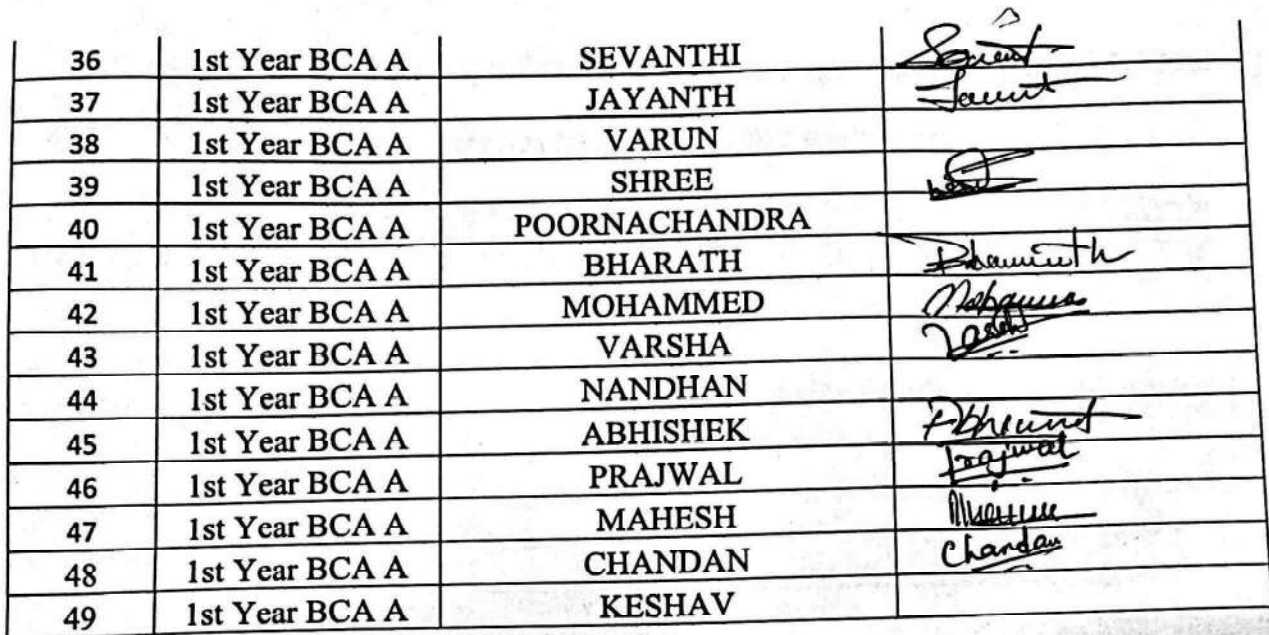 36 1st Year BCA A SEVANTHI
37 1st Year BCA A JAYANTH
38 1st Year BCA A VARUN
39 1st Year BCA A SHREE
40 1st Year BCA A POORNACHANDRA
41 1st Year BCA A BHARATH
42 1st Year BCA A MOHAMMED
43 1st Year BCA A VARSHA
44 1st Year BCA A NANDHAN
45 1st Year BCA A ABHISHEK
46 1st Year BCA A PRAJWAL Prajwal
47 1st Year BCA A MAHESH
48 1st Year BCA A CHANDAN Chandan
49 1st Year BCA A KESHAV